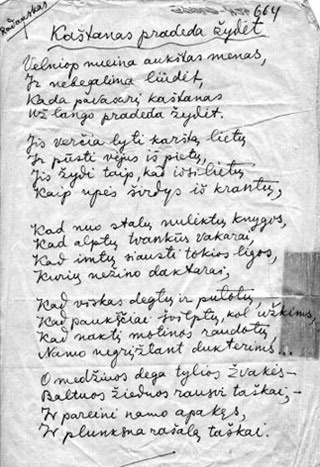 Kaštanas pradeda žydėt
Velniop nueina aukštas menas,
Ir nebegalima liūdėt,
Kada pavasarį kaštanas
Už lango pradeda žydėt.
Jis verčia lyti karštą lietų
Ir pūsti vėjus iš pietų,
Jis žydi taip, kad išsilietų
Kaip upės širdys iš krantų;
Kad nuo stalų nuliktų knygos,
Kad alptų tvankūs vakarai,
Kad imtų siausti tokios ligos,
Kurių nežino daktarai;
Kad viskas degtų ir putotų,
Kad paukščiai švilptų, kol užkims,
Kad naktį motinos raudotų
Namo negrįžtant dukterims...
O medžiuos dega tylios žvakės –
Baltuos žieduos rausvi taškai, –
Ir pareini namo apakęs,
Ir plunksna rašalą taškai.